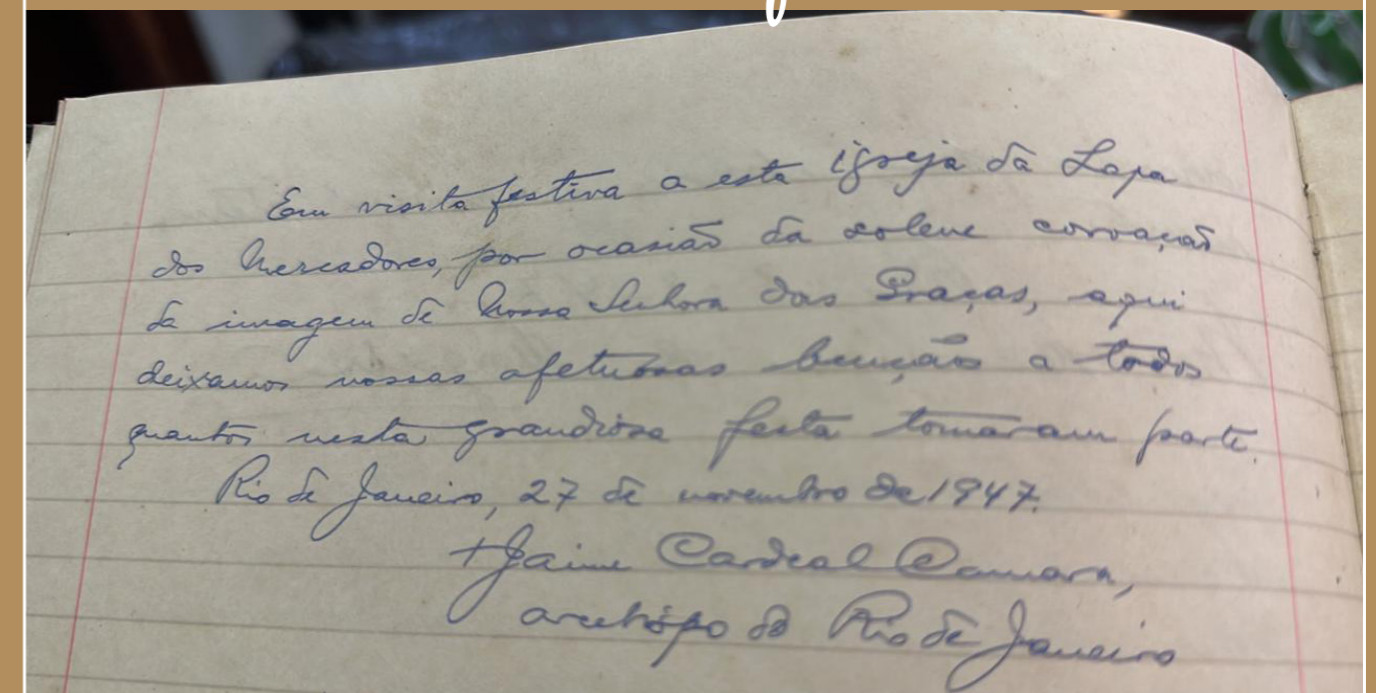 Em visita festiva a esta igreja da Lapa
dos Mercadores, por ocasião da solene coroação
da imagem de Nossa Senhora das Graças, aqui
deixamos nossas afetuosas bençãos a todos
quantos nesta grandiosa festa tomaram parte.
Rio de Janeiro, 27 de novembro de 1947.
+ Jaime Cardeal Camara,
arcebispo do Rio de Janeiro